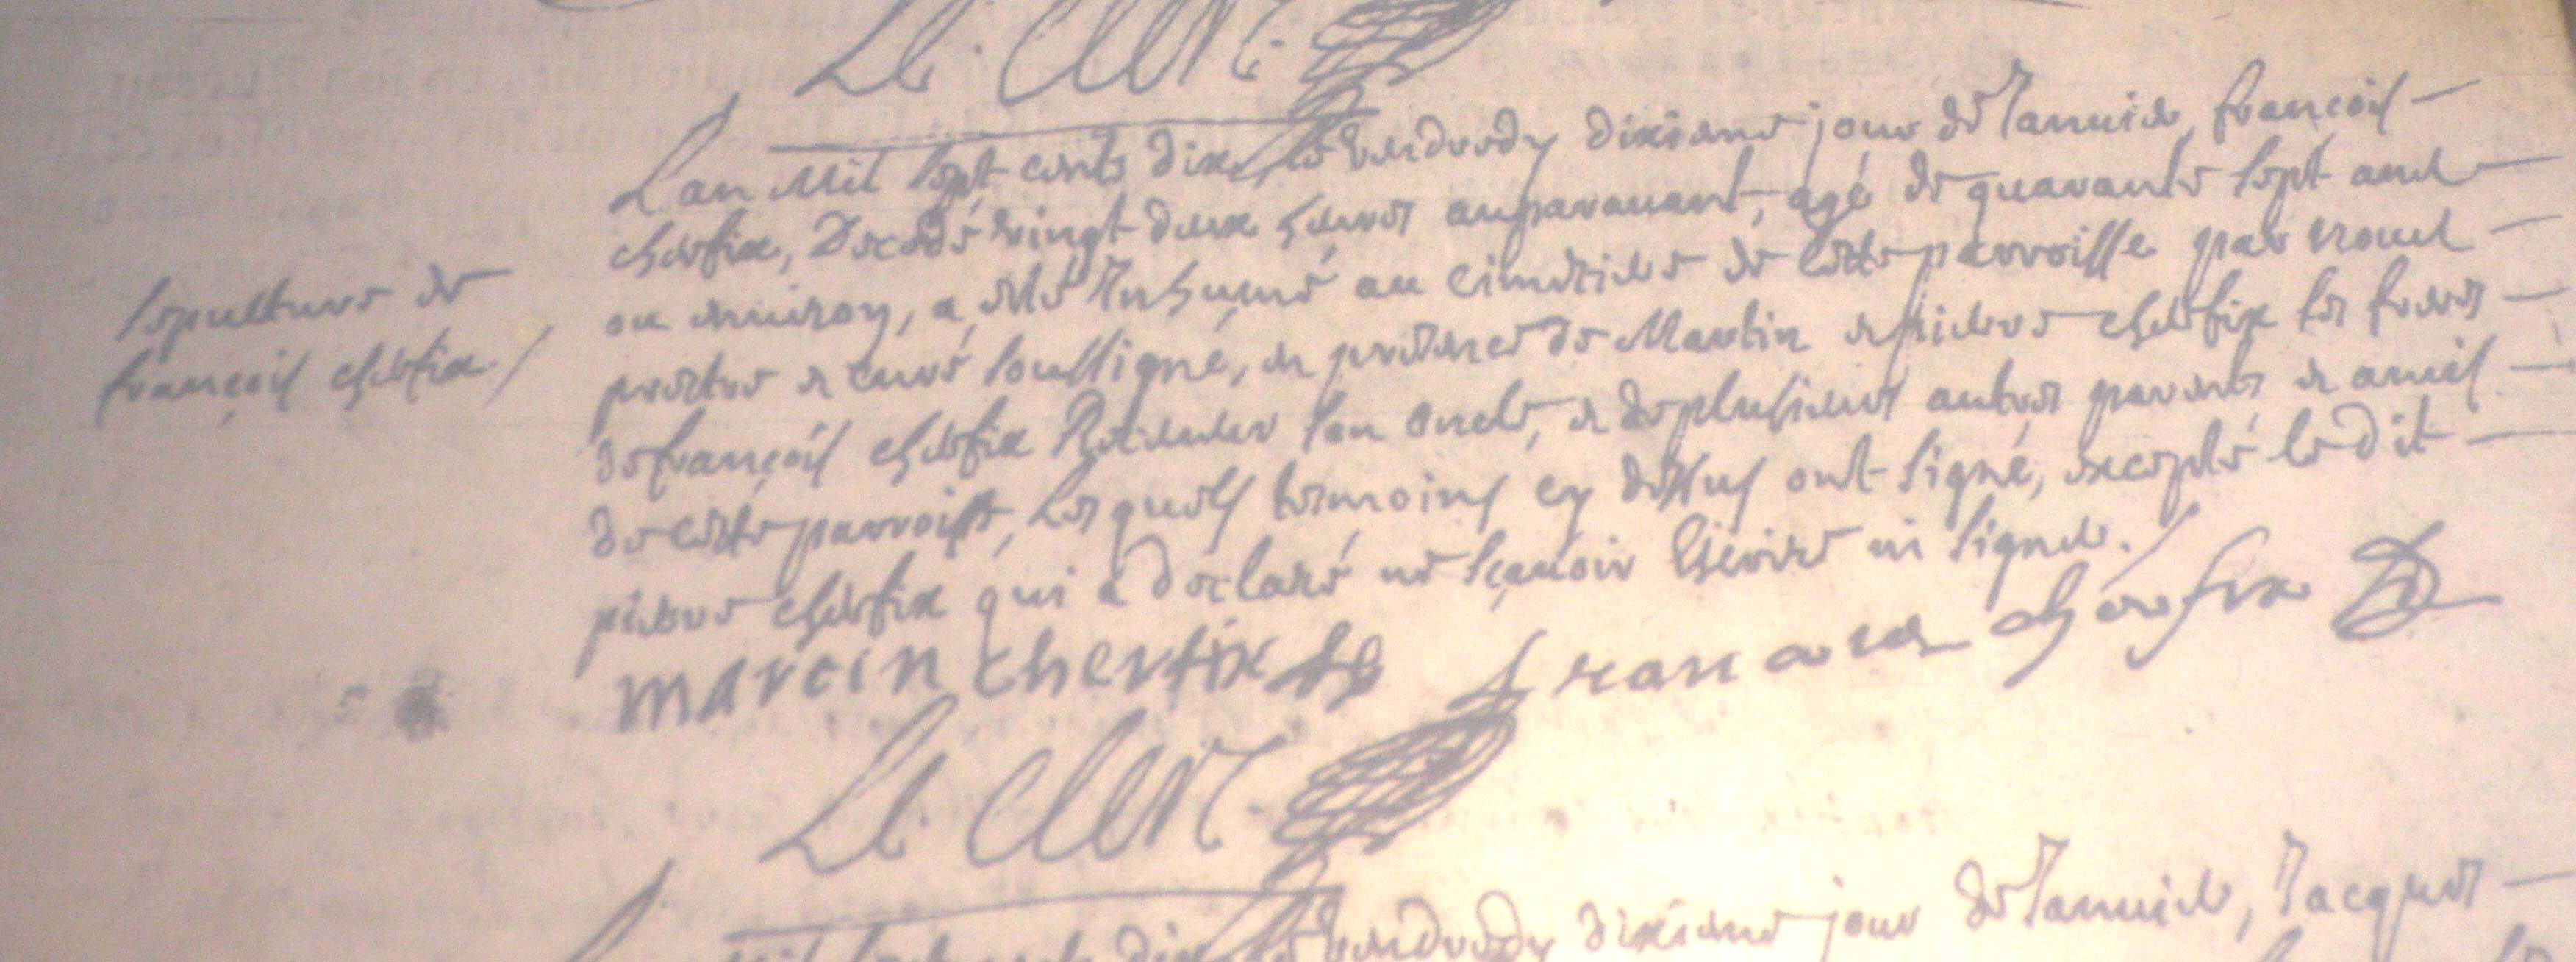 Le Clerc.
Lan Mil sept cents dix, le vendredy dixieme jour de Januier, françois
cherfix, Decedé vingt deux heures auparauant, agé de quarante sept ans
ou enuiron, a esté Inhumé au cimetiere de cette parroisse par nous
sepulture de
prestre et curé soussigné, en presence de Martin et pierre cherfix ses freres
françois cherfix./
de françois cherfix son oncle, et de plusieurs autres parents et amis
de cette parroisse, lesquels tesmoins cy dessus ont signé, excepté ledit
pierre cherfix qui a declaré ne sçauoir Escrire ni signer./
marcin cherfix francois cherfix
Le Clerc.
Mil sept cents dix le vendredy dixieme jour de Januier, Jacques